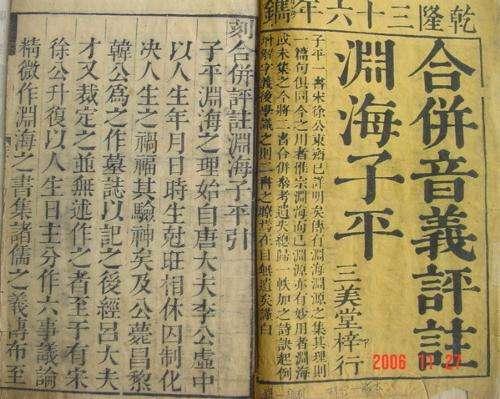 乾隆三十六年鐫
合併音義評註
淵海子平
三美堂梓行
子平一書宋徐公東齋已詳明矣傳有淵海淵源之集其理則
一篇句俱同今之用者惟宗淵海而已淵源亦有妙用者淵海
或未集之今將二書合併參考遺失總歸一帙加之詩訣起例
刻合併評註淵海子平引
子平淵海之理始自唐大夫李公虛中
以人生年月日時生尅旺相休囚制化
決人生之禍福其驗神矣及公薨昌黎
韓公為之作墓誌以記之後經呂大夫
才又裁定之並無述作之者至于有宋
徐公升復以人生日主分作六事議論
精微作淵海之書集諸儒之義傳布至
2006 11 27